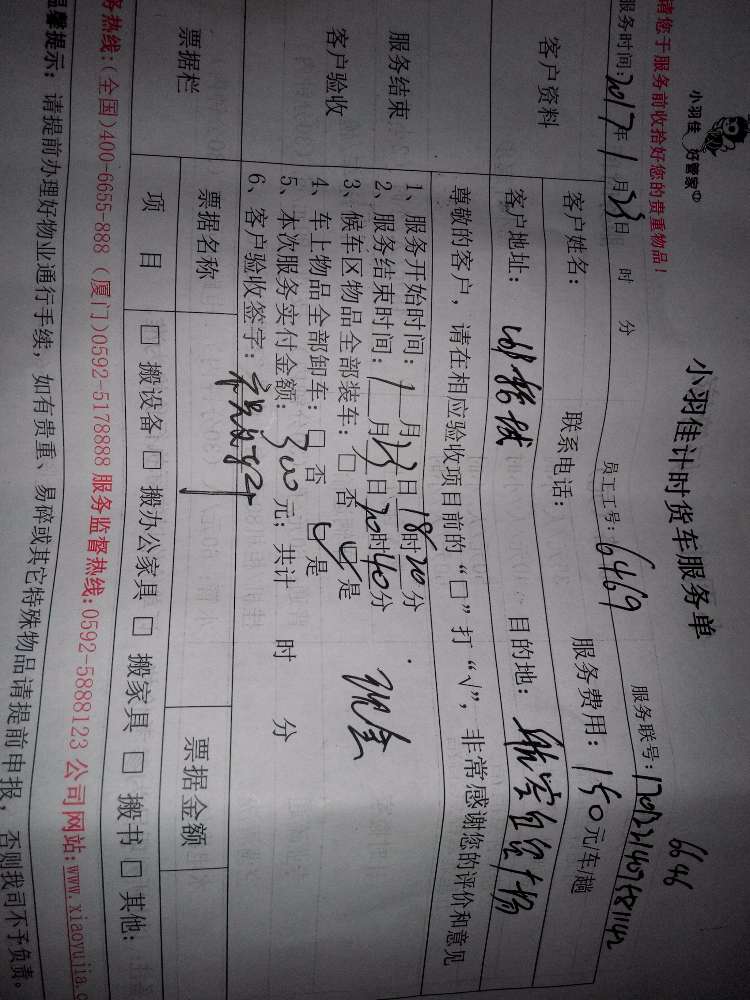 小羽佳 好管家
小羽佳计时货车服务单
6646
请您于服务前收拾好您的贵重物品！
员工工号：6469
服务联号：
服务时间：2017年1月23日 时 分
客户资料
客户姓名：
联系电话：
服务费用：150元/车/趟
客户地址：
目的地：
尊敬的客户，请在相应验收项目前的“□”打“√”，非常感谢您的评价和意见
服务结束
客户验收
1、服务开始时间：1月23日18时20分
2、服务结束时间：1月23日20时40分
3、候车区物品全部装车：□否 ☑是
现金
4、车上物品全部卸车：□否 ☑是
5、本次服务实付金额：300元；共计 时 分
6、客户验收签字：
票据栏
票据名称
票据金额
项 目
□ 搬设备 □ 搬办公家具 □ 搬家具 □ 搬书 □ 其他：
务热线：(全国)400-6655-888 (厦门)0592-5178888 服务监督热线：0592-5888123 公司网站：www.xiaoyujia.c
温馨提示：请提前办理好物业通行手续，如有贵重、易碎或其它特殊物品请提前申报，否则我司不予负责。